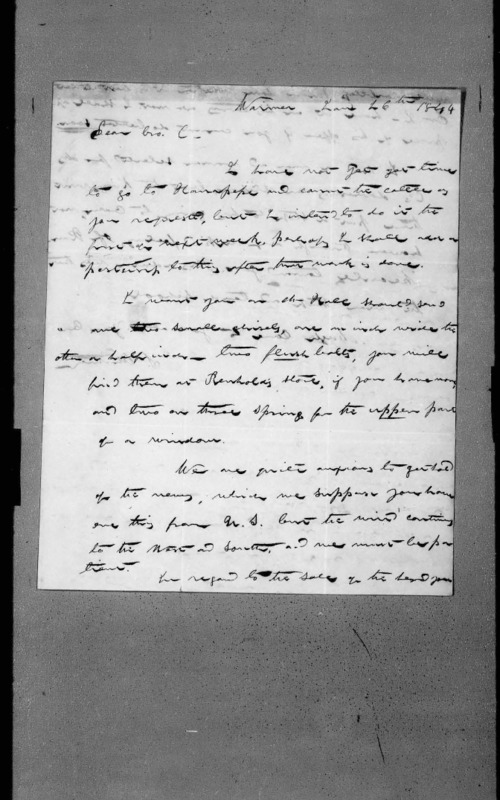 Waimea Jan 26th 1844
Dear Bro. C—
I have not yet got time
to go to Hanapepe and count the cattle as
you requested, but I intend to do it the
first of next week, perhaps I shall add a
postscript to this after that work is done.
I want you or Mr Hall should send
me two small chisels, one an inch wide the
other a half inch— two flush bolts, you will
find them at Reynolds store, if you have none
and two or three springs for the upper part
of a window.
We are quite anxious to get hold
of the news, which we suppose you have
ere this from U.S. but the wind continues
to the West and South, and we must be pa
tient.
In regard to the sale of the land you